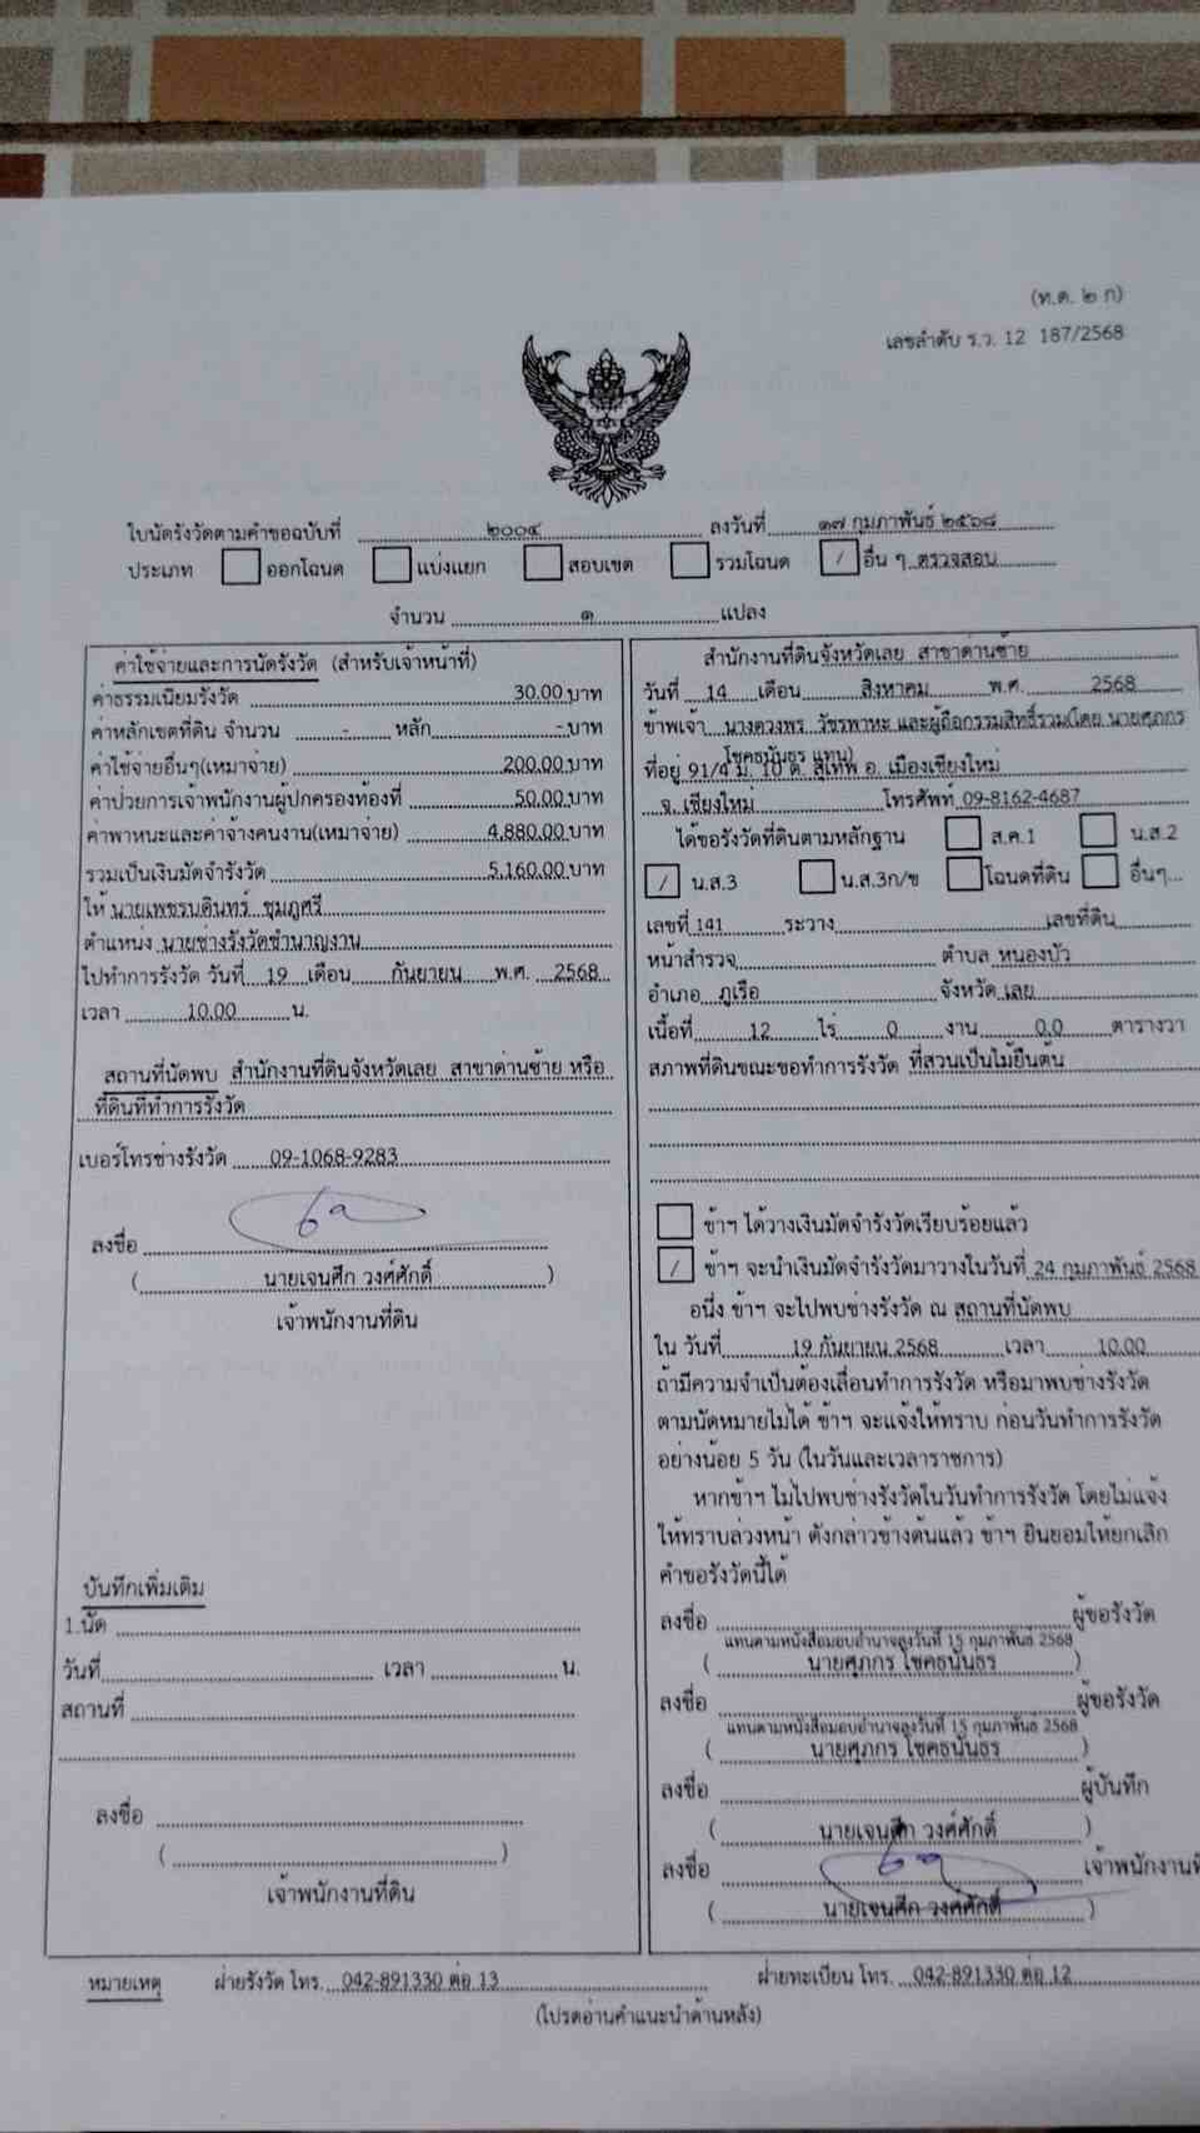 (ท.ด. ๒ ก)
เลขลำดับ ร.ว. 12 187/2568
ใบนัดรังวัดตามคำขอฉบับที่ ๒๐๐๔ ลงวันที่ ๑๗ กุมภาพันธ์ ๒๕๖๘
ประเภท ออกโฉนด แบ่งแยก สอบเขต รวมโฉนด / อื่น ๆ ตรวจสอบ
จำนวน ๑ แปลง
ค่าใช้จ่ายและการนัดรังวัด (สำหรับเจ้าหน้าที่)
ค่าธรรมเนียมรังวัด 30.00 บาท
ค่าหลักเขตที่ดิน จำนวน - หลัก - บาท
ค่าใช้จ่ายอื่นๆ(เหมาจ่าย) 200.00 บาท
ค่าป่วยการเจ้าพนักงานผู้ปกครองท้องที่ 50.00 บาท
ค่าพาหนะและค่าจ้างคนงาน(เหมาจ่าย) 4,880.00 บาท
รวมเป็นเงินมัดจำรังวัด 5,160.00 บาท
ให้ นายเพชรบดินทร์ ชุมภูศรี
ตำแหน่ง นายช่างรังวัดชำนาญงาน
ไปทำการรังวัด วันที่ 19 เดือน กันยายน พ.ศ. 2568
เวลา 10.00 น.
สถานที่นัดพบ สำนักงานที่ดินจังหวัดเลย สาขาด่านซ้าย หรือ
ที่ดินที่ทำการรังวัด
เบอร์โทรช่างรังวัด 09-1068-9283
ลงชื่อ
(นายเจนศึก วงศ์ศักดิ์)
เจ้าพนักงานที่ดิน
บันทึกเพิ่มเติม
1.นัด
วันที่ เวลา น.
สถานที่
ลงชื่อ
( )
เจ้าพนักงานที่ดิน
สำนักงานที่ดินจังหวัดเลย สาขาด่านซ้าย
วันที่ 14 เดือน สิงหาคม พ.ศ. 2568
ข้าพเจ้า นางดวงพร วัชรพาหะ และผู้ถือกรรมสิทธิ์รวม(โดย นายศุภกร
โชคธนันธร แทน)
ที่อยู่ 91/4 ม. 10 ต. สุเทพ อ. เมืองเชียงใหม่
จ. เชียงใหม่ โทรศัพท์ 09-8162-4687
ได้ขอรังวัดที่ดินตามหลักฐาน ส.ค.1 น.ส.2
/ น.ส.3 น.ส.3ก/ข โฉนดที่ดิน อื่นๆ...
เลขที่ 141 ระวาง เลขที่ดิน
หน้าสำรวจ ตำบล หนองบัว
อำเภอ ภูเรือ จังหวัด เลย
เนื้อที่ 12 ไร่ 0 งาน 0.0 ตารางวา
สภาพที่ดินขณะขอทำการรังวัด ที่สวนเป็นไม้ยืนต้น
ข้าฯ ได้วางเงินมัดจำรังวัดเรียบร้อยแล้ว
/ ข้าฯ จะนำเงินมัดจำรังวัดมาวางในวันที่ 24 กุมภาพันธ์ 2568
อนึ่ง ข้าฯ จะไปพบช่างรังวัด ณ สถานที่นัดพบ
ใน วันที่ 19 กันยายน 2568 เวลา 10.00
ถ้ามีความจำเป็นต้องเลื่อนทำการรังวัด หรือมาพบช่างรังวัด
ตามนัดหมายไม่ได้ ข้าฯ จะแจ้งให้ทราบ ก่อนวันทำการรังวัด
อย่างน้อย 5 วัน (ในวันและเวลาราชการ)
หากข้าฯ ไม่ไปพบช่างรังวัดในวันทำการรังวัด โดยไม่แจ้ง
ให้ทราบล่วงหน้า ดังกล่าวข้างต้นแล้ว ข้าฯ ยินยอมให้ยกเลิก
คำขอรังวัดนี้ได้
ลงชื่อ ผู้ขอรังวัด
แทนตามหนังสือมอบอำนาจลงวันที่ 15 กุมภาพันธ์ 2568
(นายศุภกร โชคธนันธร)
ลงชื่อ ผู้ขอรังวัด
แทนตามหนังสือมอบอำนาจลงวันที่ 15 กุมภาพันธ์ 2568
(นายศุภกร โชคธนันธร)
ลงชื่อ ผู้บันทึก
(นายเจนศึก วงศ์ศักดิ์)
ลงชื่อ เจ้าพนักงานที่
(นายเจนศึก วงศ์ศักดิ์)
หมายเหตุ ฝ่ายรังวัด โทร. 042-891330 ต่อ 13 ฝ่ายทะเบียน โทร. 042-891330 ต่อ 12
(โปรดอ่านคำแนะนำด้านหลัง)